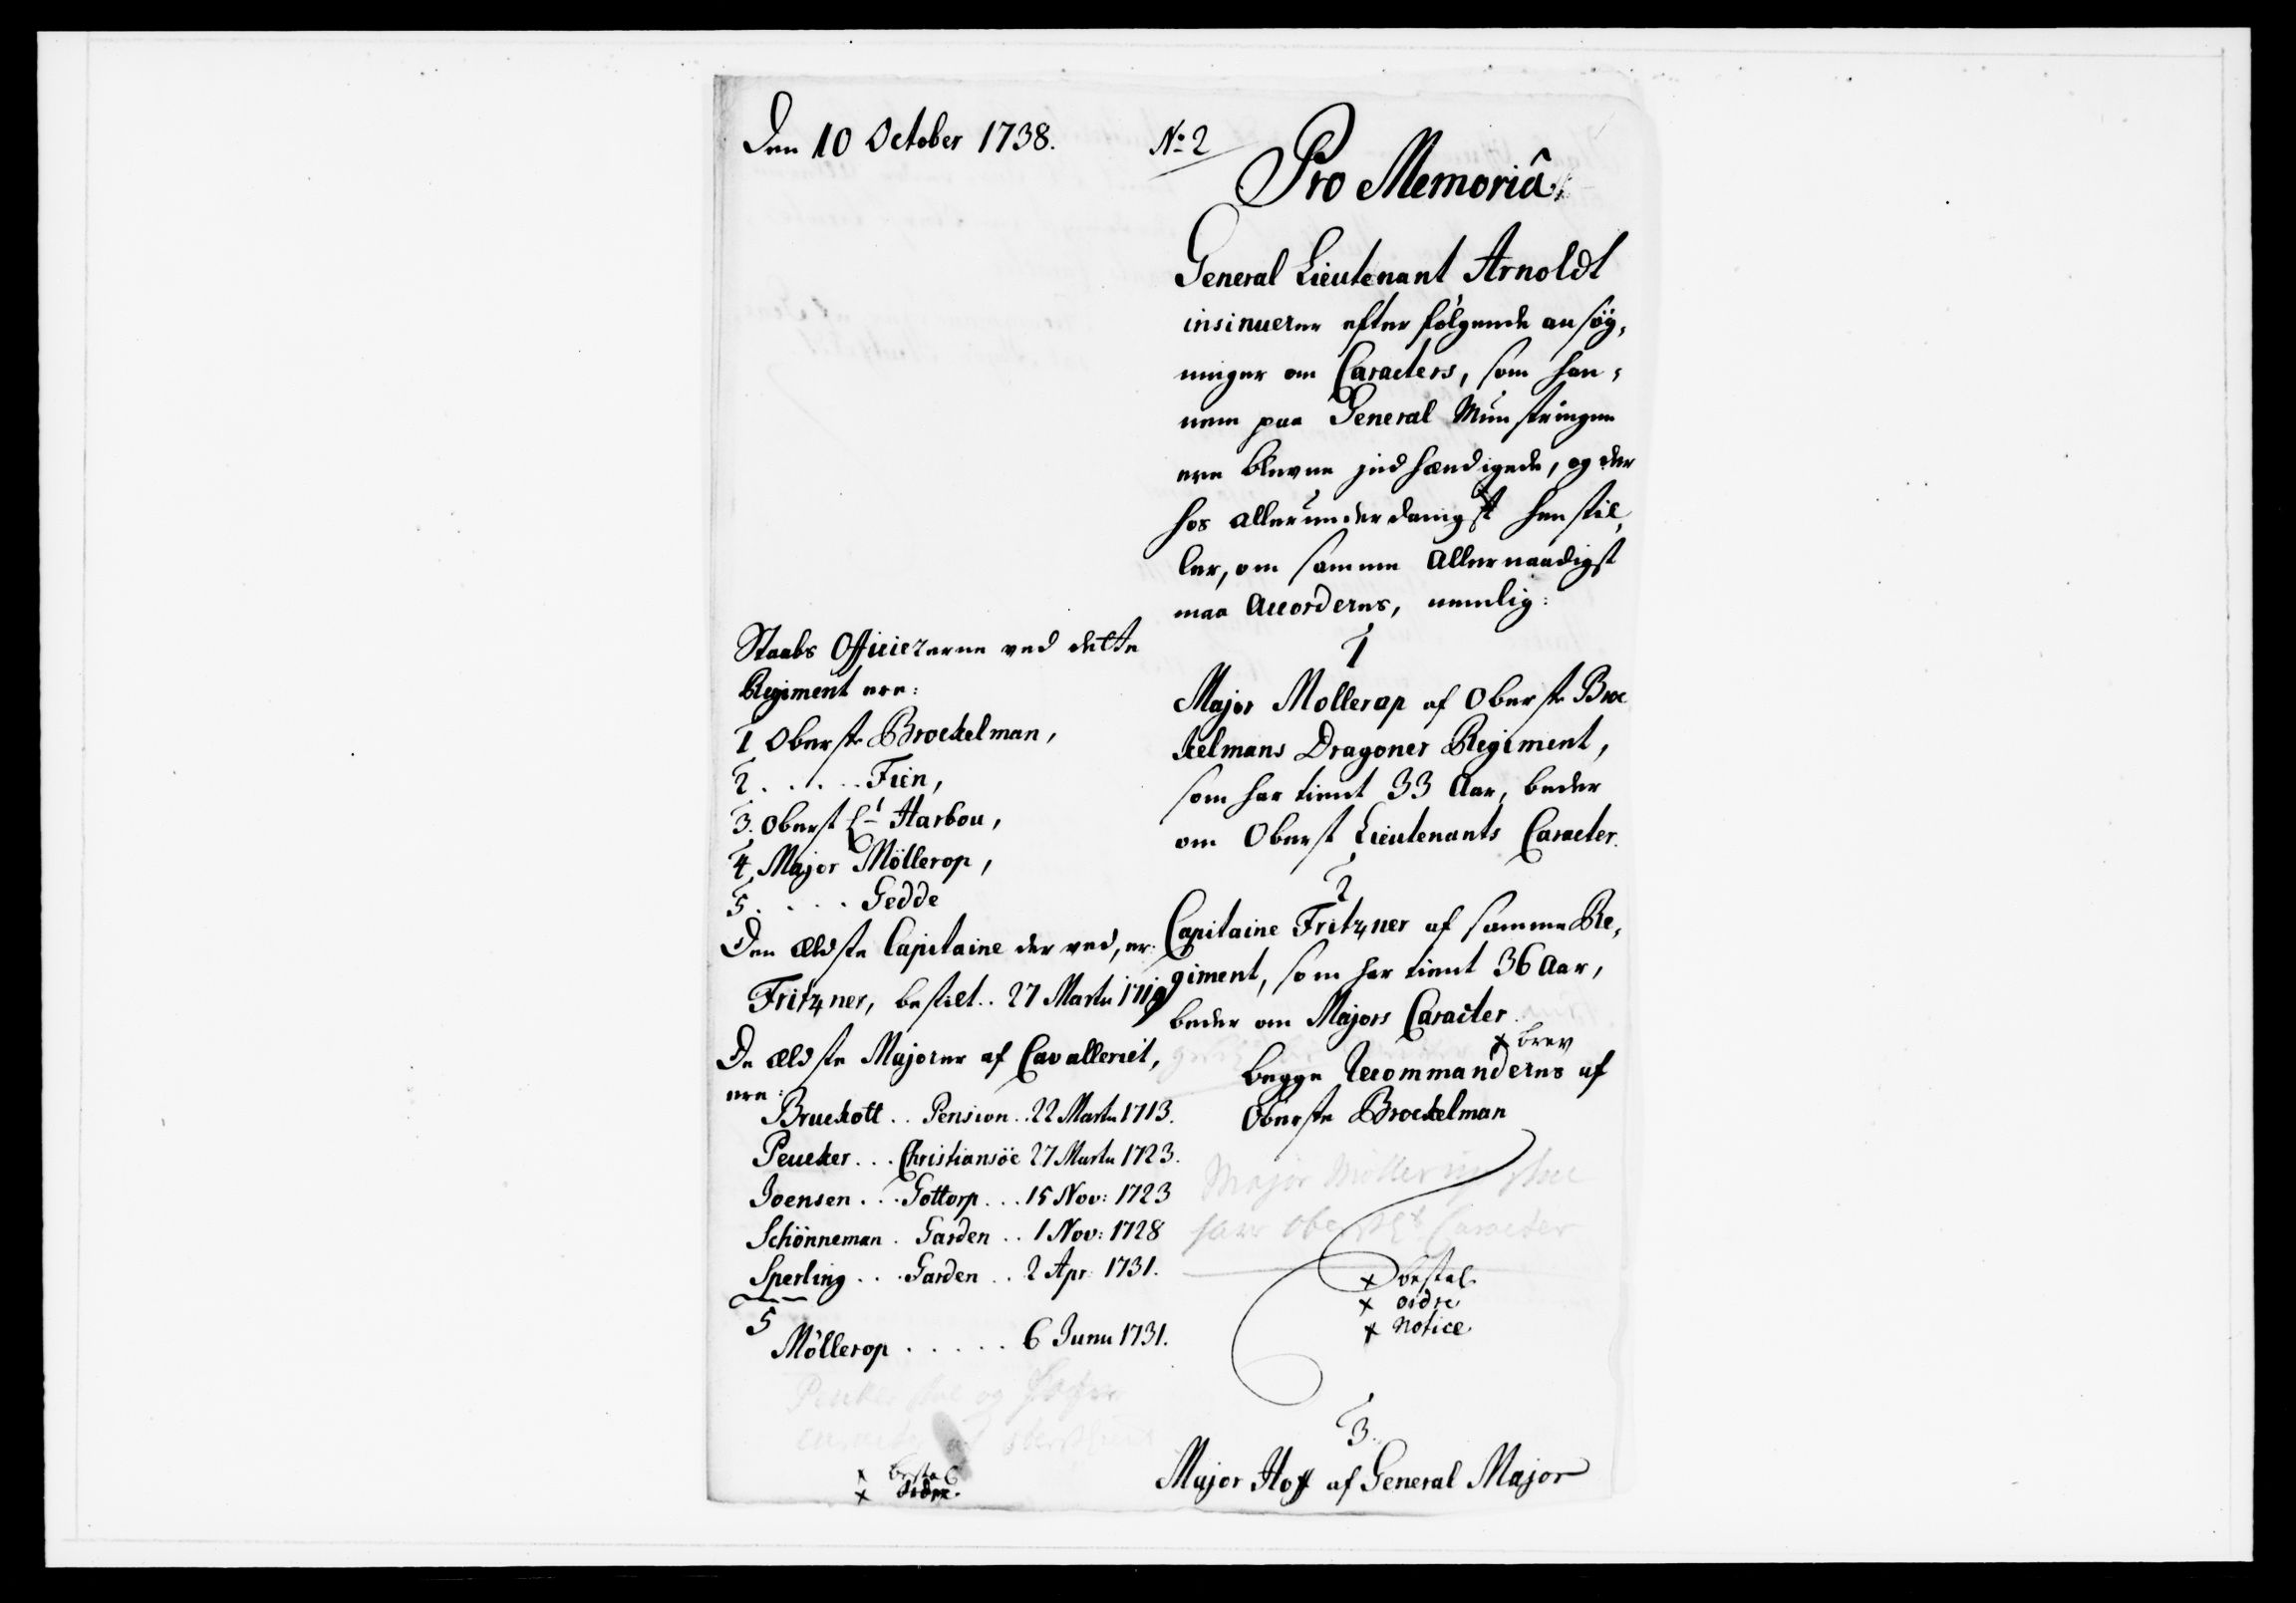 Den 10 October 1738.
No: 2
Pro Memoriâ
General Lieutenant Arnoldt
insinuerer efterfölgende ansög,
ninger om Caracters, som han,
nem paa General Munstringen
ere blevne jndhændigede, og der
hos allerunderdanigst henstil,
ler, om samme allernaadigst
maa accorderes, nemlig:
1
Major Mollerop af Oberste Broc
kelmans Dragoner Regiment,
som har tient 33 Aar, beder
om Oberst Lieutenants Caracter.
2
Capitaine Fritzner af samme Re,
giment, som har tient 36 Aar,
beder om Majors Caracter.
x brev
begge recommanderes af
Oberste Brockelman
Major Möllerup skal
have Oberstlt Caracter
x bestal
x ordre
x Notice
3.
Major Hoff af General Major
Staabs Officiererne ved dette
Regiment ere:
1 Oberste Brockelman,
2 . . . . . Fien,
3. Oberst Lt Harbou,
4. Major Möllerop,
5. . . . Gedde
Den ældste Capitaine der ved, er:
Fritzner, bestilt . . 27 Martii 1719
De ældste Majorer af Cavalleriet,
ere:
Bruckott . . Pension . . 22 Martii 1713.
Peucker . . . Christiansöe 27 Martii 1723.
Joensen . . . Gottorp . . . 15 Nov: 1723
Schönneman . Garden . . 1 Nov: 1728
Sperling . . . Garden . . 2 Apr: 1731.
5
Möllerop . . . . . 6 Junii 1731.
Peucker skal og
x bestal
x ordre.